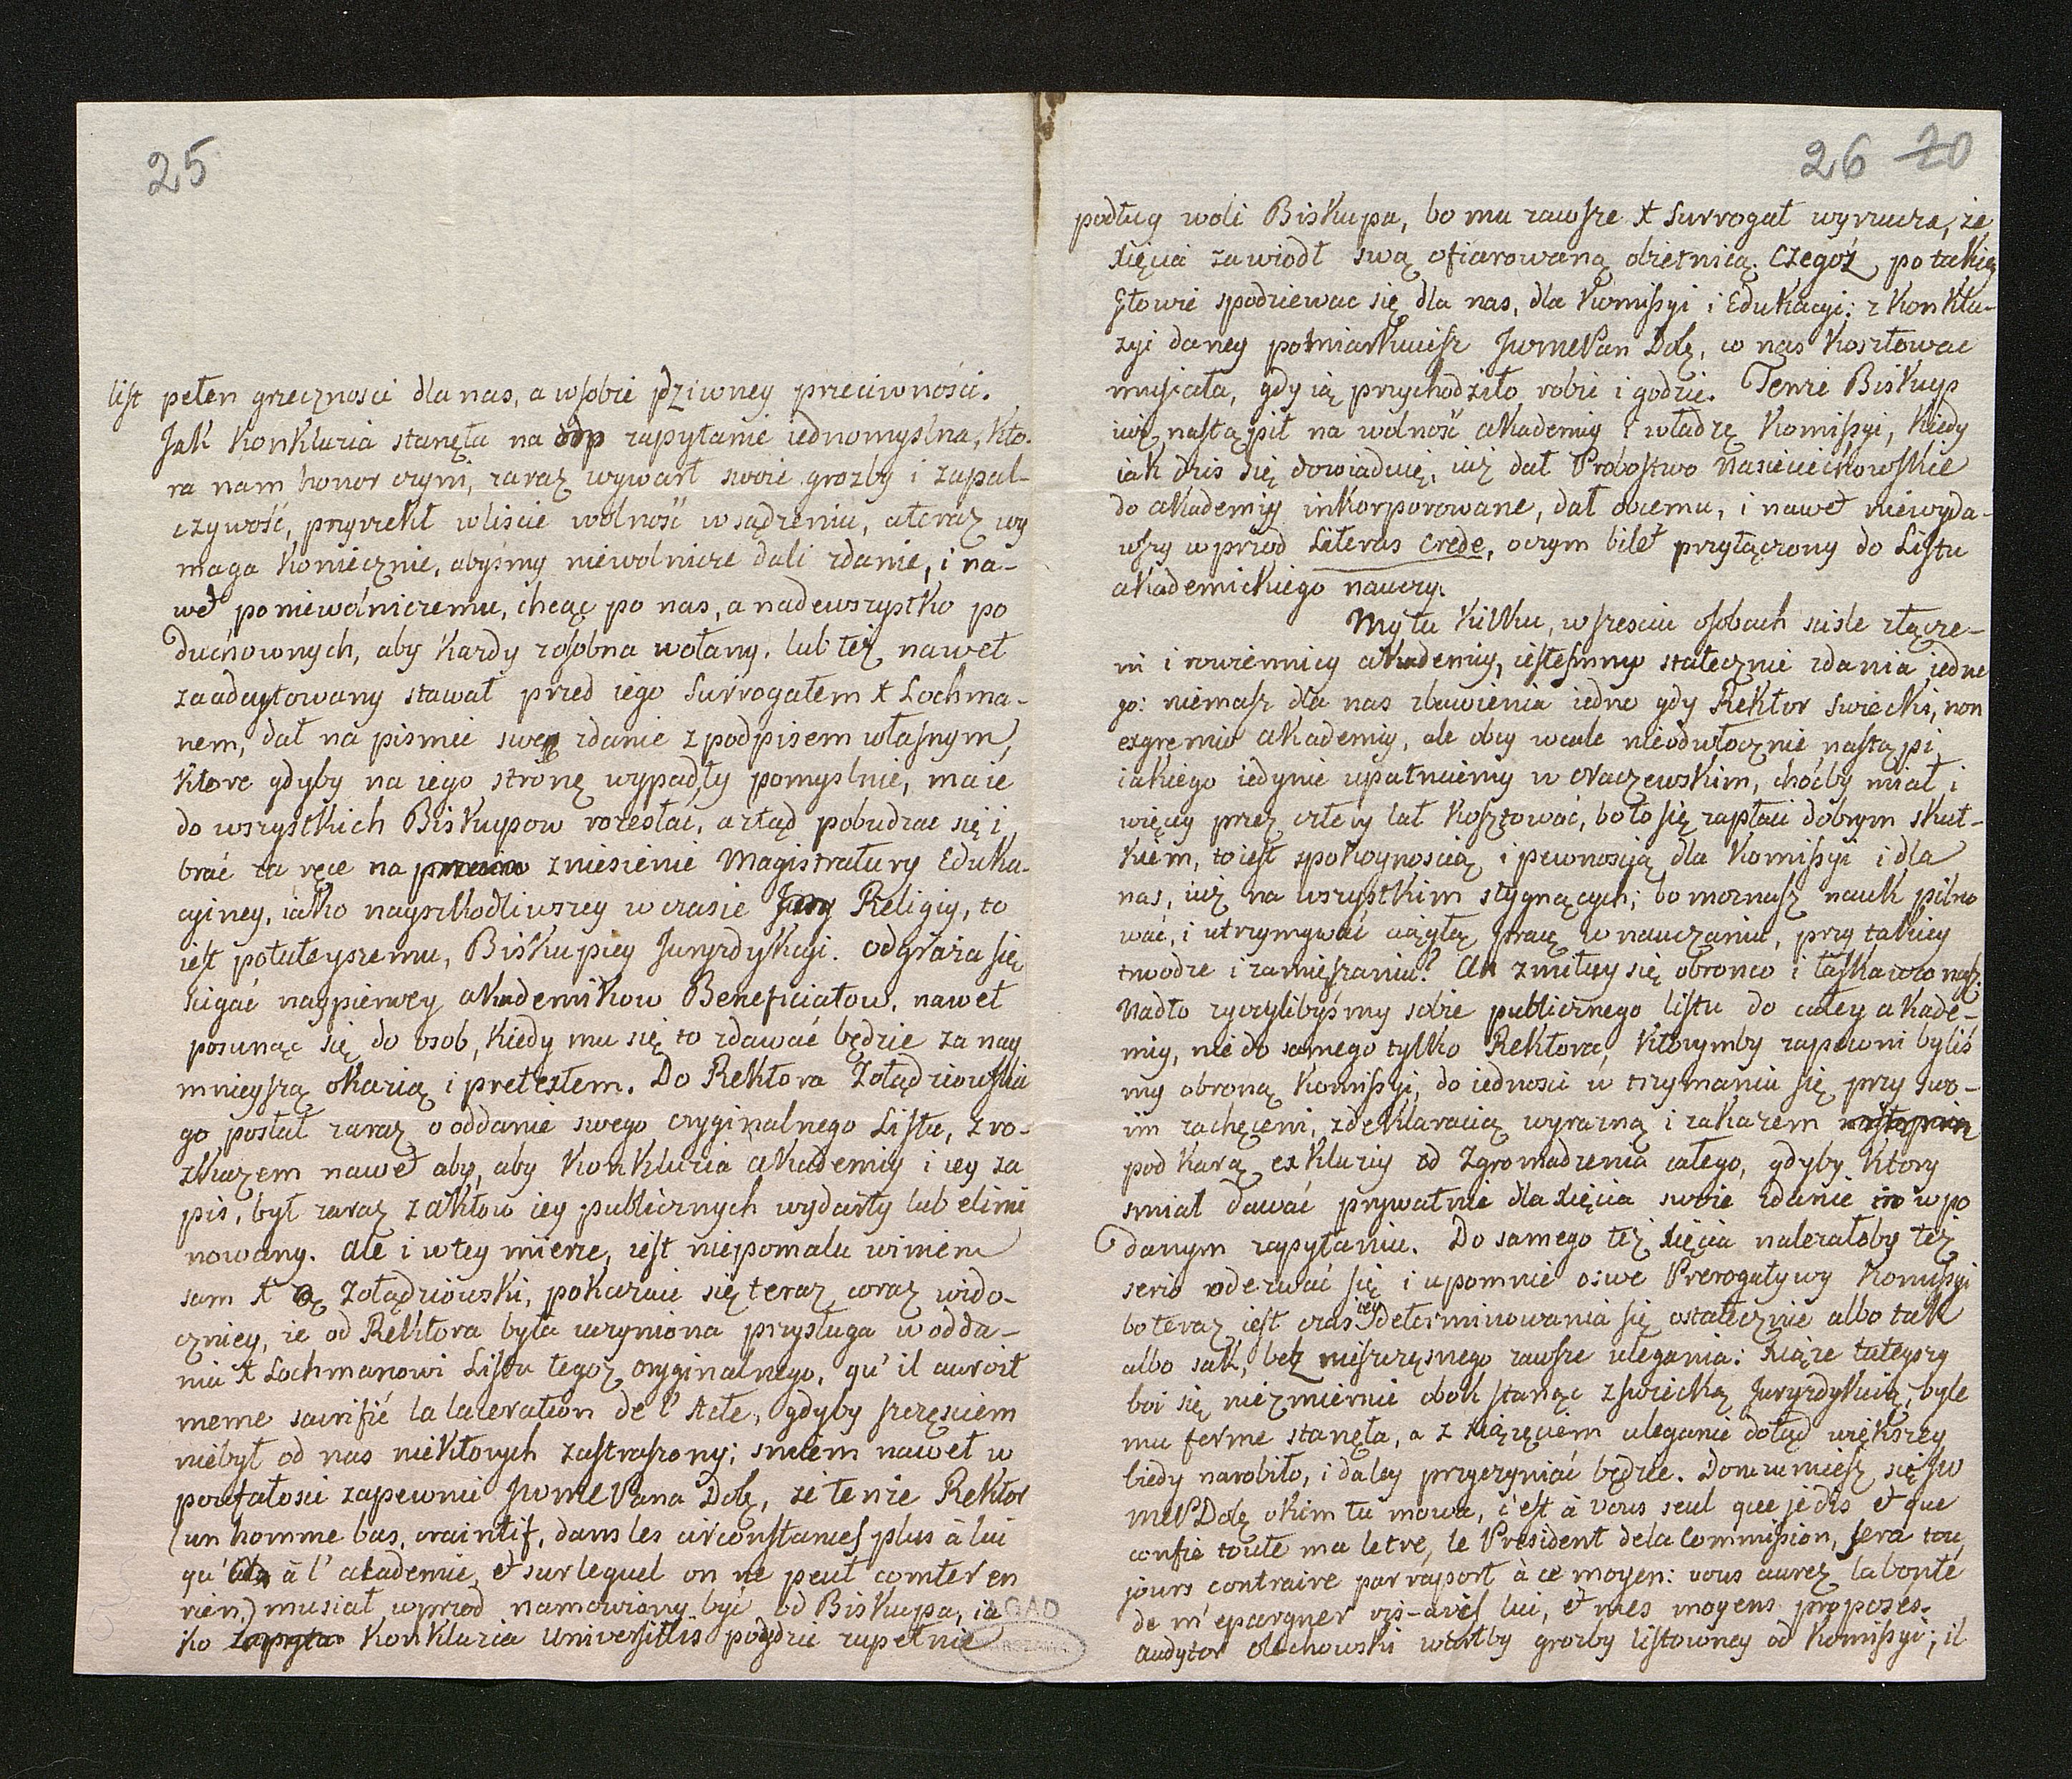 25
list pełen grzecznosci dla nas, a wsobie dziwney przeciwności.
Jak Konkluzia stanęła na odp zapytanie iednomyslna, Kto-
ra nam honor czyni, zaraz wywarł swoie grozby i zapal-
czywość, przyrzekł wliscie wolność wsądzeniu, ateraz wy
maga Koniecznie, abyśmy niewolnicze dali zdanie, i na-
wet poniewolniczemu, chcąc po nas, a nadewszystko po
Duchownych, aby Kazdy zosobna wołany, lub też nawet
zaadcytowany stawał przed iego Surrogatem X Lochma-
nem, dał na pismie swe zdanie z podpisem własnym,
Ktore gdyby na iego stronę wypadły pomyslnie, ma ie
do wszystkich Biskupow rozesłać, a ztąd pobudzac się i
brać za ręce na zniesienie Magistratury Eduka-
cyiney, iako nayszkodliwszey w czasie Religiy, to
iest potuteyszemu, Biskupiey Juryzdykcyi. Odgraza się
sięgać naypierwey akademikow Beneficiatow, nawet
posunąc się do osob, Kiedy mu się to zdawać będzie za nay
mnieyszą okazią i pretextem. Do Rektora Zołądziowskie
go posłał zaraz o oddanie swego oryginalnego Listu, z ro-
zkazem nawet aby, aby Konkluzia akademiy i iey za
pis, był zaraz z aktow iey publicznych wydarty lub elimi
nowany. Ale i wtey mierze, iest niepomału winien
sam X Zołądziowski, pokazuie się teraz coraz wido-
czniey, ze od Rektora była uczyniona przysługa w odda-
niu X Lochmanowi Listu tegoz oryginalnego, qu' il auroit
meme sacrifié la lateration de l' Acte, gdyby szczęsciem
niebył od nas niektorych zastraszony; smiem nawet w
poufałosci zapewnic JWmć Pana Dobę, ze tenze Rektor
(un homme bas, craintif, dans les circonstances plus à lui
qu' à l' akademie, et sur lequel on ne peut comter en
rien.) musiał wprzod namowiony być od Biskupa, ia
ko Konkluzia Universitatis poydzie zupełnie
26 20
podług woli Biskupa, bo mu zawsze X Surrogat wyrzuca, ze
Xięcia zawiodł swą ofiarowaną obietnicą. Czegoż po takiey
głowie spodziewac się dla nas, dla Komissyi i Edukacyi: z Konklu-
zyi daney pomiarkuiesz JWmć Pan Dobę, co nas kosztowac
musiała, gdy ią przychodziło robic i godzic. Tenze Biskup
iuż nastąpił na wolność akademiy i władzę Komissyi, Kiedy
iak dzis się dowiaduię, iuż dał Probostwo Nasieciechowskie
do akademiy inkorporowane, dał obcemu, i nawet niewyda-
wszy wprzod Literas Crede, oczym bilet przyłączony do Listu
akademickiego nauczy.
My tu Kilku, w szesciu osobach scisle złącze-
ni i rowiennicy akademiy, iestesmy statecznie zdania iedne
go: niemasz dla nas zbawienia iedno gdy Rektor Swiecki, non
exgremio akademiy, ale obcy wcale nieodwłocznie nastąpi
iakiego iedynie upatruiemy w Oraczewskim, choćby miał i
więcey przez cztery lat kosztować, bo to się zapłaci dobrym skut-
kiem, toiest spokoynoscią i pewnoscią dla Komissyi i dla
nas, iuż na wszystkim stygnących; bo moznasz nauk pilno
wać, i utrzymywać ciągłą pracę w nauczaniu, przy takiey
trwodze i zamieszaniu? Ah zmiłuy się obronco i łaskawco nasz.
Nadto zyczylibyśmy sobie publicznego listu do całey akade-
miy, nie do samego tylko Rektora, Ktorymby zapewni byliś
my obroną Komissyi, do iednosci i trzymania się przy swo-
im zachęceni, zdeklaracią wyrazną i zakazem
pod karą exkluziy od Zgromadzenia całego, gdyby Ktory
smiał dawać prywatnie dla Xięcia swoie zdanie w po
danym zapytaniu. Do samego też Xięcia nalezałoby też
serio odezwać się i upomnic oswe Prerogatywy Komissyi
bo teraz iest czas iey determinowania się ostatecznie albo tak
albo siak, bez nieszczęsnego zawsze ulegania: Xiąze tuteyszy
boi się niezmiernie obok stanąc z swiecką Juryzdykcią, byle
mu ferme stanęła, a z Xiązęciem uleganie dotąd większey
biedy narobiło, i daley przyczyniać będzie. Domumiesz się JW
MCP Dobę okim tu mowa, c'est à vous seul que je dis et que
confie toute ma letre, le Président de la Commission, sera tou
jours contraire par raport à ce moyen: vous aurez la bonté
de m' epargner vis-avis lui, et mes moyens proposés.
Audytor Olechowski wartby grozby listowney od Komissyi; il
AGAD
WARSZAWA